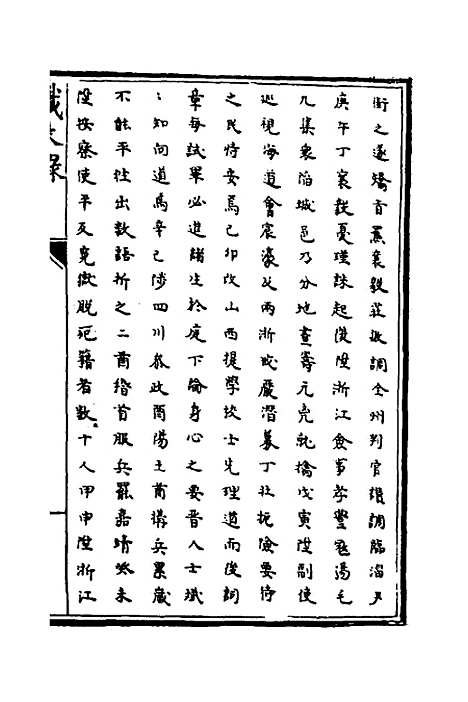 銜之遂矯旨黨襄毅莊坂調全州判官繼調臨淄尹
庚午丁襄毅憂瑾誅起復陞浙江僉事學豐冦湯毛
九集衆陷城邑乃分地畫籌元兇就擒戊寅陞副使
巡視海道會宸濠反兩浙戒嚴潛募丁壯扼險要待
之民恃安焉己卯改山西提學校士先理道而後詞
章每試畢必進諸生於庭下論身心之要晋人士斌
〻知向道焉辛巳陟四川叅政酉陽土酋搆兵累歲
不能平往出數語折之二酋稽首服兵罷嘉靖癸未
陞按察使平反寃獄脫死籍者數十人甲申陞浙江
獻徵錄